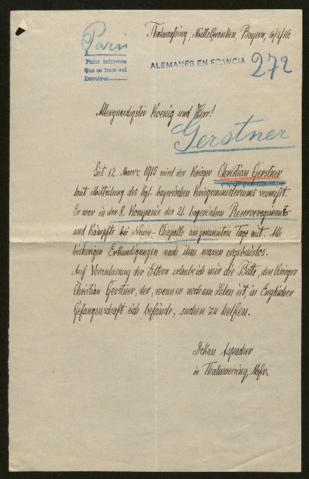 Paris
Pedir informes
Que se trate así
Devolver
Thalmässing, Mittelfranken, Bayern, 6/2/16
ALEMANES EN FRANCIA
272
Allergnädigster Koenig und Herr!
Gerstner
Seit 12. Maerz 1915 wird der Krieger Christian Gerstner
laut Mitteilung des kgl. bayerischen Kriegsministeriums vermißt.
Er war in der 8. Kompanie des 21. bayerischen Reserveregiments
und kämpfte bei Neuve-Chapelle am genannten Tage mit. Alle
bisherigen Erkundigungen nach ihm waren ergebnislos.
Auf Veranlassung der Eltern erlaube ich mir die Bitte, den Krieger
Christian Gerstner, der, wenn er noch am Leben ist, in Englischer
Gefangenschaft sich befände, suchen zu helfen.
in Thalmässing, Mfr.